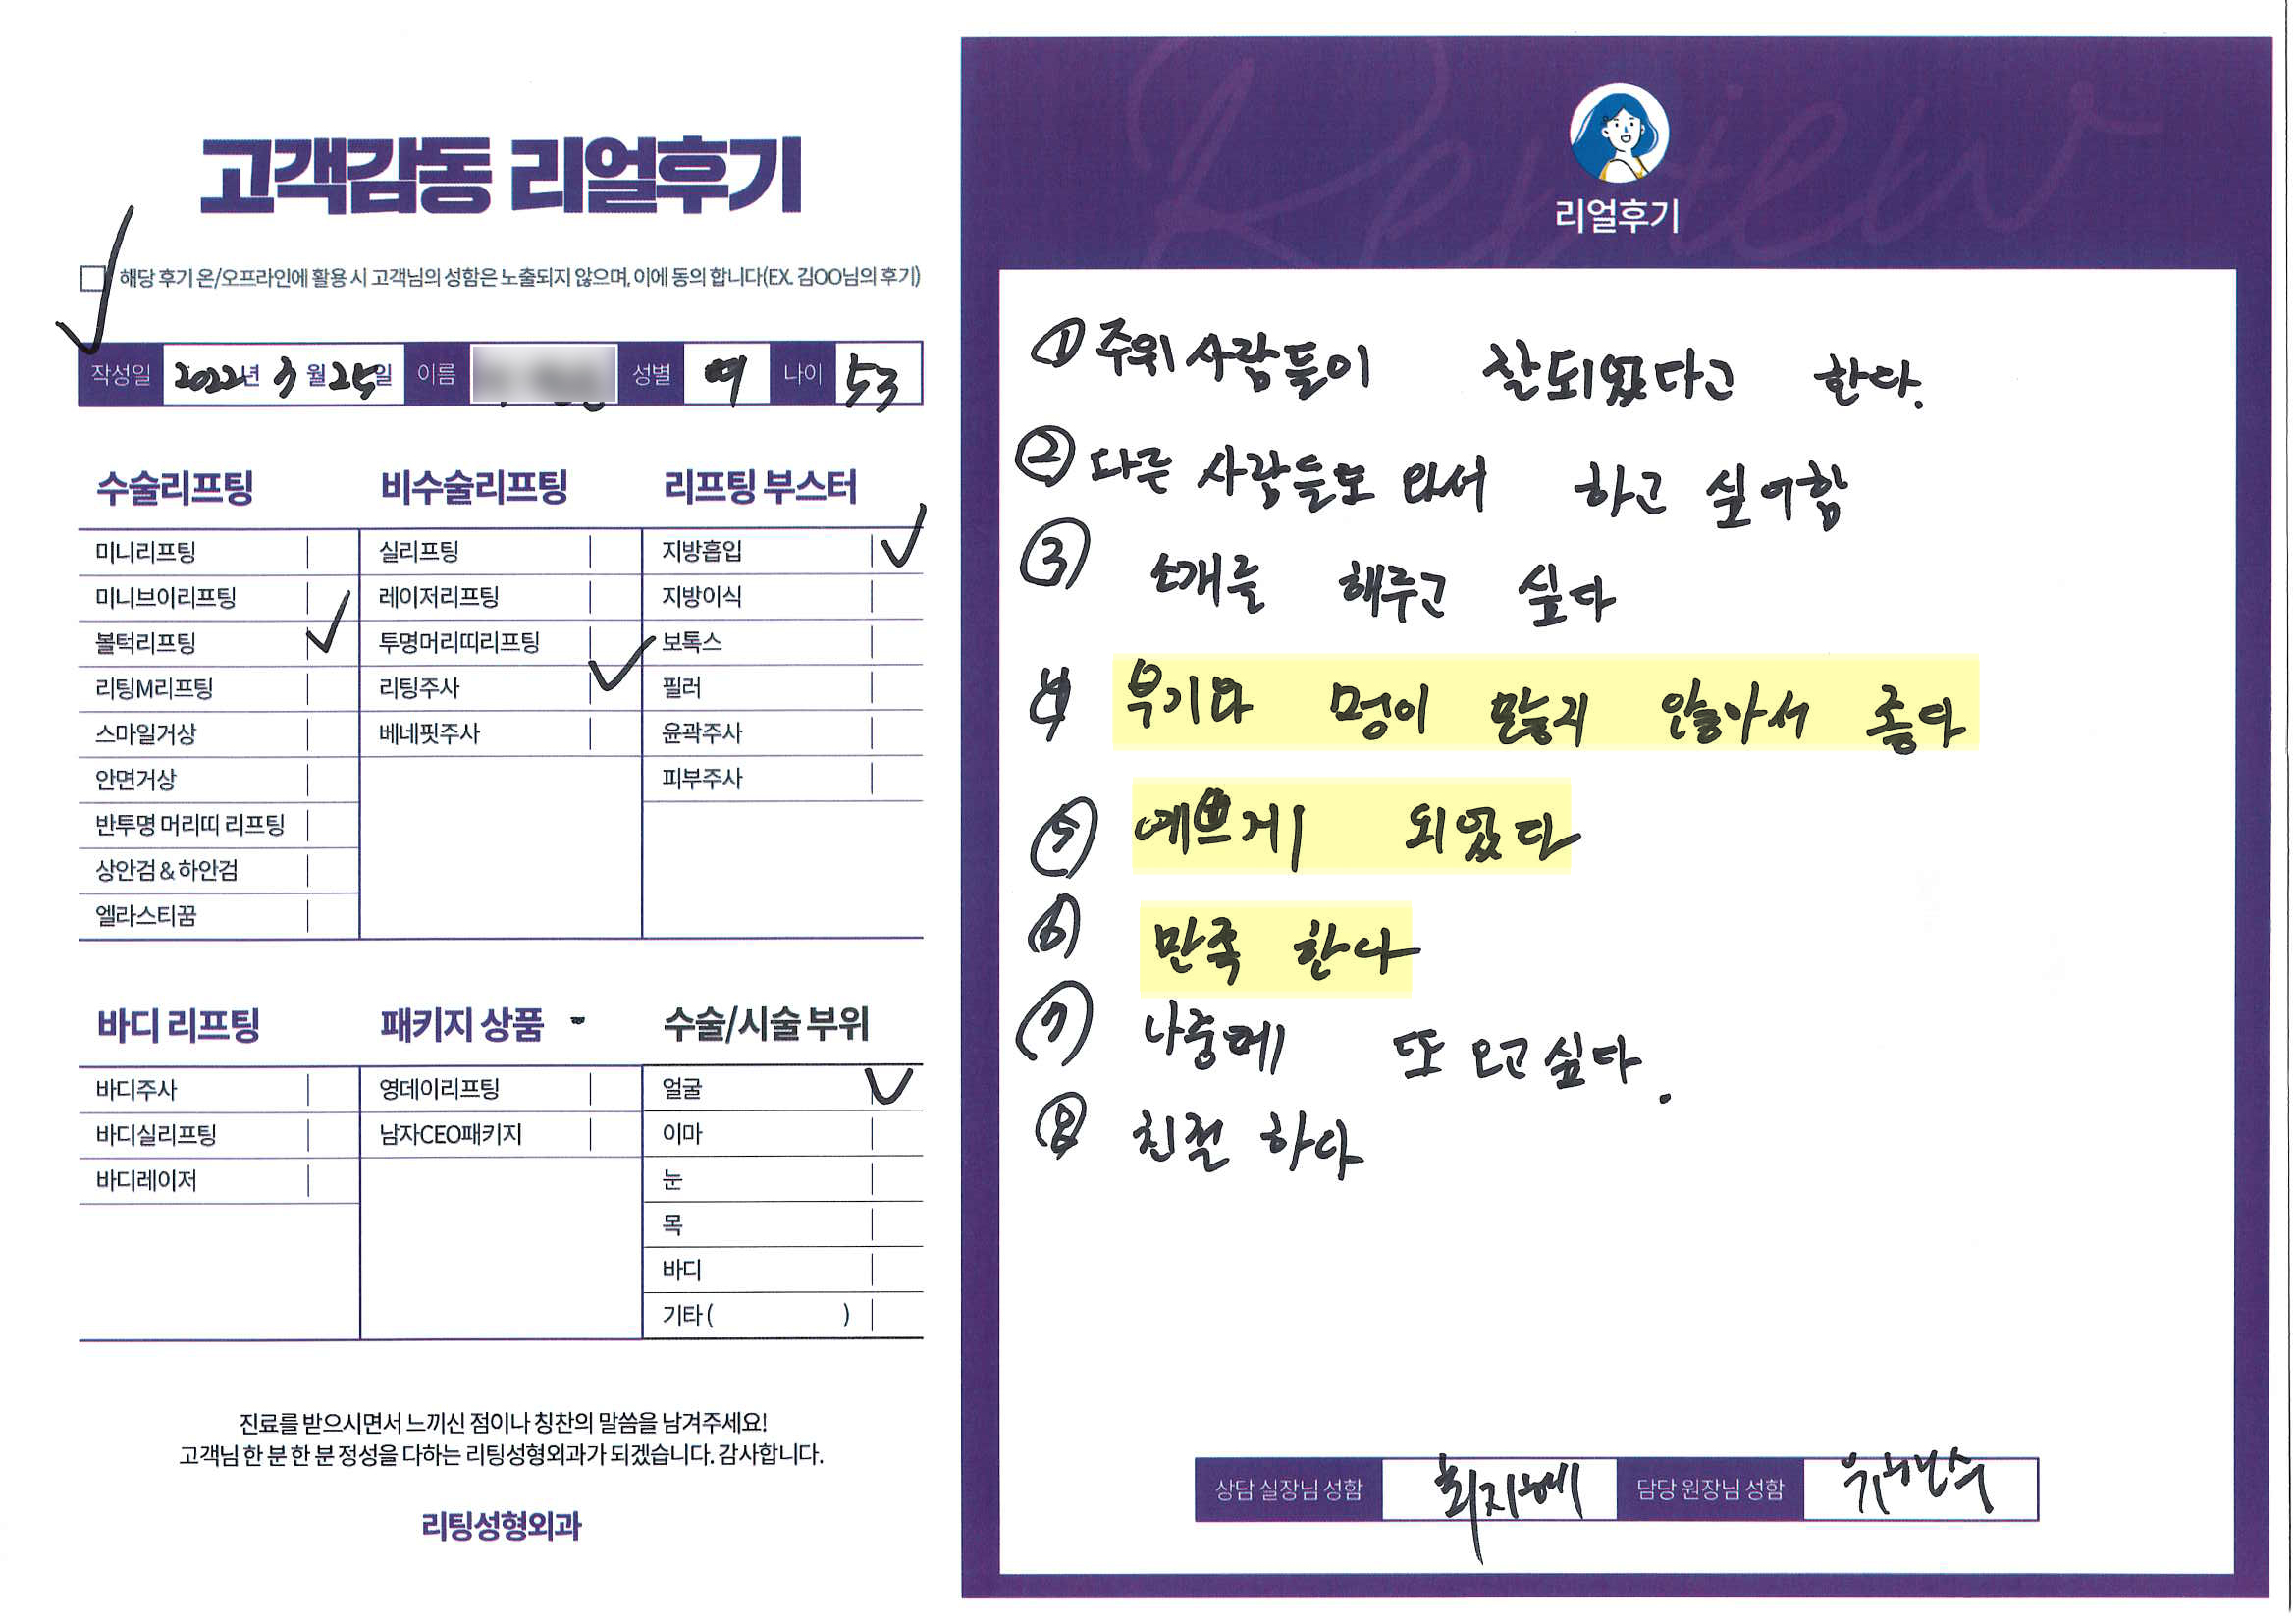 고객감동 리얼후기
해당 후기 온/오프라인에 활용 시 고객님의 성함은 노출되지 않으며, 이에 동의 합니다(EX. 김OO님의 후기)
작성일 2022년 3월 25일 이름 성별 여 나이 53
수술리프팅
미니리프팅
미니브이리프팅
볼턱리프팅
리팅M리프팅
스마일거상
안면거상
반투명 머리띠 리프팅
상안검 & 하안검
엘라스티꿈
비수술리프팅
실리프팅
레이저리프팅
투명머리띠리프팅
리팅주사
베네핏주사
리프팅 부스터
지방흡입
지방이식
보톡스
필러
윤곽주사
피부주사
바디 리프팅
바디주사
바디실리프팅
바디레이저
패키지 상품 -
영데이리프팅
남자CEO패키지
수술/시술 부위
얼굴
이마
눈
목
바디
기타 ( )
진료를 받으시면서 느끼신 점이나 칭찬의 말씀을 남겨주세요!
고객님 한 분 한 분 정성을 다하는 리팅성형외과가 되겠습니다. 감사합니다.
리팅성형외과
Review
리얼후기
① 주위 사람들이 잘되었다고 한다.
② 다른 사람들도 와서 하고 싶어함
③ 소개를 해주고 싶다
④ 부기와 멍이 많지 않아서 좋다
⑤ 예쁘게 되었다
⑥ 만족 한다
⑦ 나중에 또 오고 싶다.
⑧ 친절 하다
상담 실장님 성함 최지혜 담당 원장님 성함